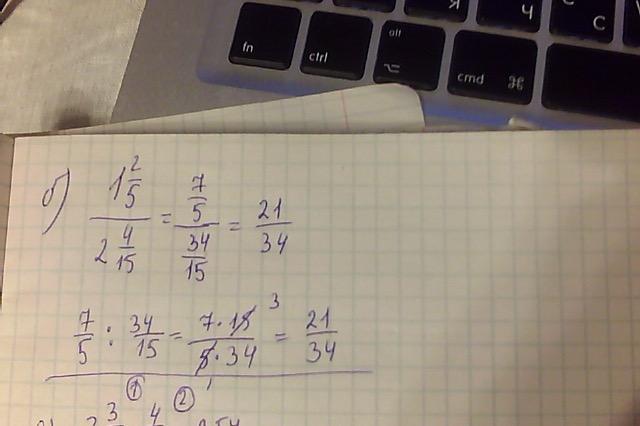 Ч С
fn ctrl alt ⌥ cmd ⌘
б) (1 2/5)/(2 4/15) = (7/5)/(34/15) = 21/34
7/5 : 34/15 = (7·15)/(5·34) = 21/34
3
1
① ②